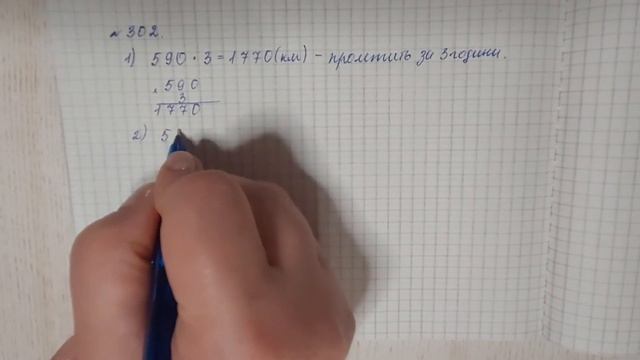 №302.
1) 590 · 3 = 1770 (км) - пролетить за 3 години.
× 590
3
1770
2) 5